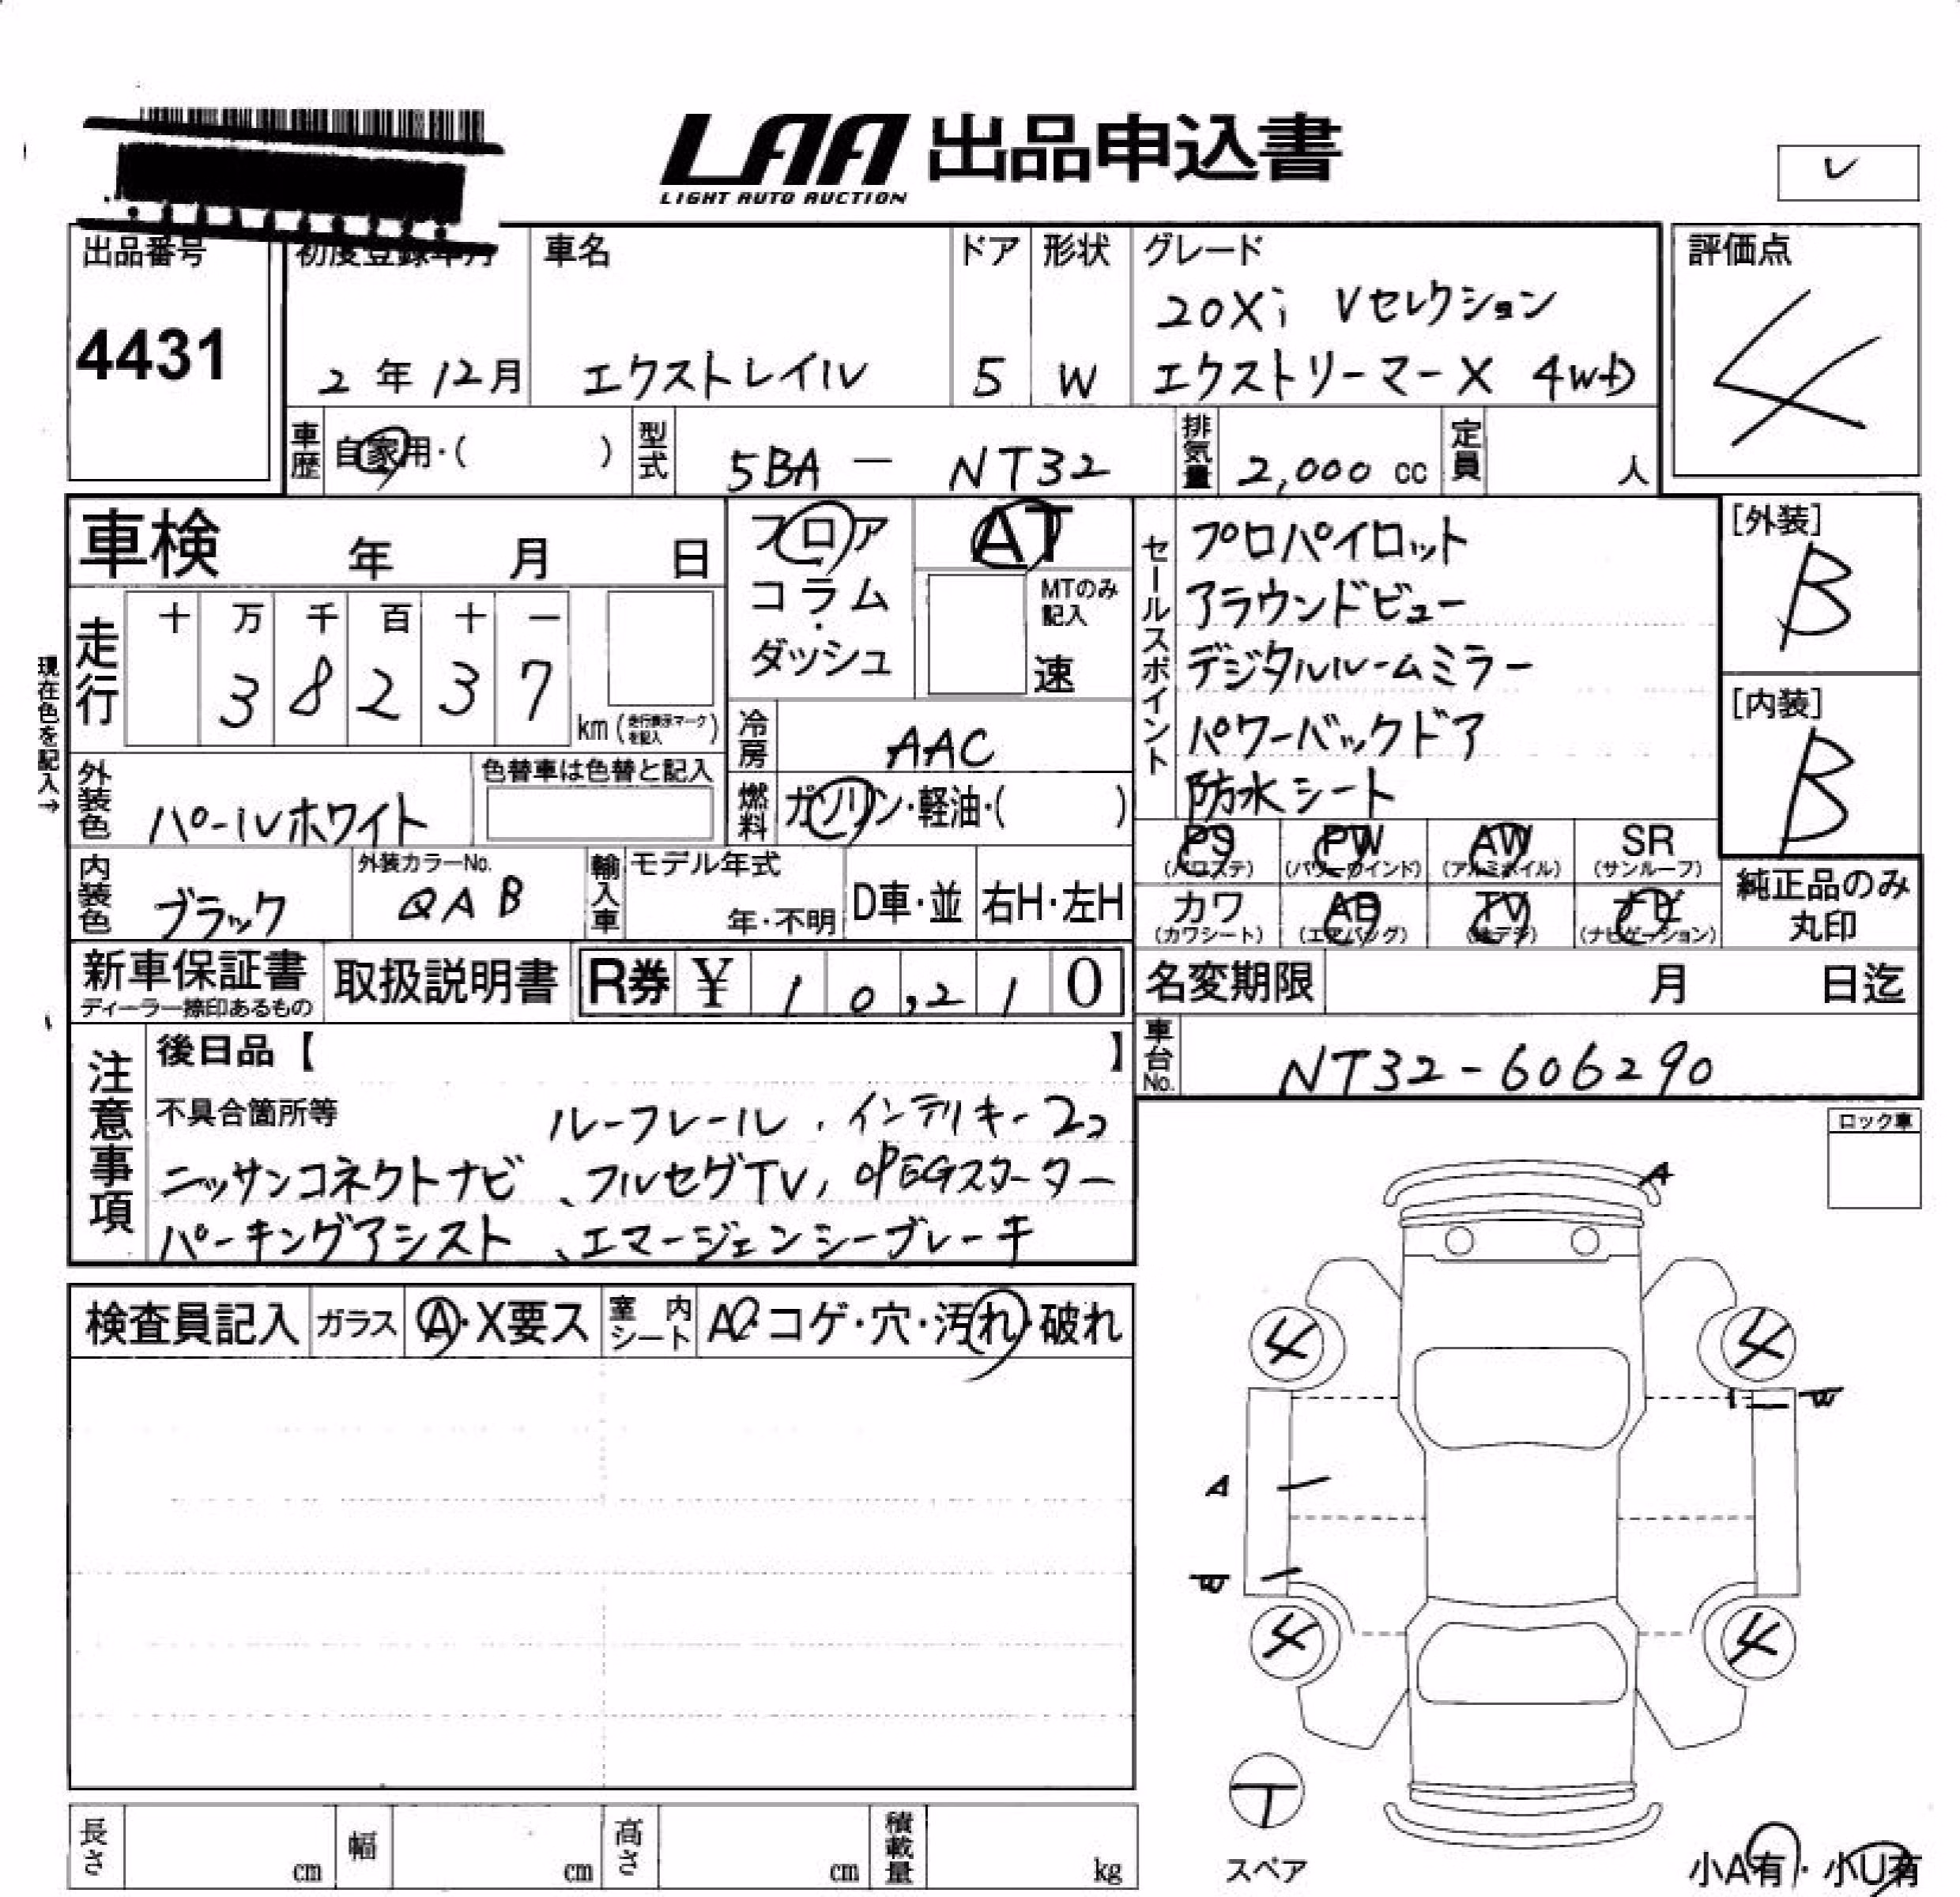 LAA 出品申込書
LIGHT AUTO AUCTION
レ
出品番号
4431
初度登録年月
2年12月
車名
エクストレイル
ドア
5
形状
W
グレード
20Xi Vセレクション
エクストリーマーX 4WD
評価点
4
車歴
自家用・( )
型式
5BA - NT32
排気量
2,000 cc
定員
人
車検 年 月 日
フロア
コラム
・
ダッシュ
AT
MTのみ
記入
速
セールスポイント
プロパイロット
アラウンドビュー
デジタルルームミラー
パワーバックドア
防水シート
[外装]
B
[内装]
B
現在色を記入→
走行
十 万 千 百 十 一
3 8 2 3 7
km (走行表示マークを記入)
冷房
AAC
燃料
ガソリン・軽油・( )
外装色
パールホワイト
色替車は色替と記入
PS (パワステ)
PW (パワーウインド)
AW (アルミホイル)
SR (サンルーフ)
カワ (カワシート)
AB (エアバッグ)
TV (地デジ)
ナビ (ナビゲーション)
純正品のみ
丸印
内装色
ブラック
外装カラーNo.
QAB
輸入車
モデル年式
年・不明
D車・並
右H・左H
新車保証書
ディーラー捺印あるもの
取扱説明書
R券 ¥ 10,210
名変期限 月 日迄
車台No.
NT32-606290
注意事項
後日品【 】
不具合箇所等
ルーフレール、インテリキー2コ
ニッサンコネクトナビ、フルセグTV、OPEGスターター
パーキングアシスト、エマージェンシーブレーキ
ロック車
検査員記入
ガラス
A・X要ス
室内シート
AC・コゲ・穴・汚れ・破れ
A
4 4
W
A
W
4 4
T
スペア
小A有・小U有
長さ cm
幅 cm
高さ cm
積載量 kg